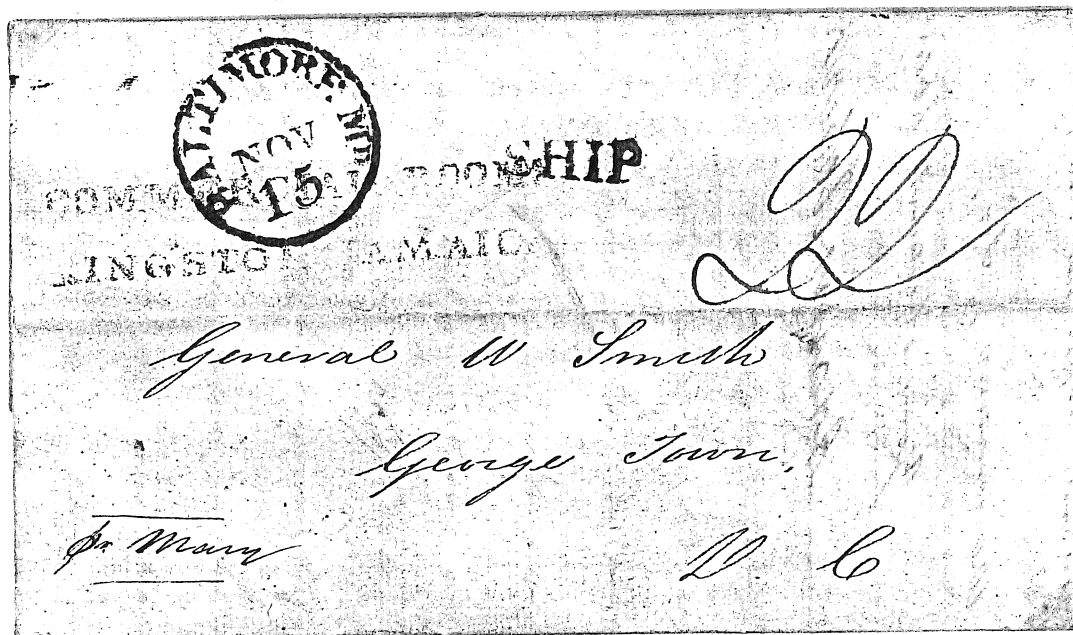 BALTIMORE. MD.
NOV
15
SHIP
COMMERCIAL ROOMS
KINGSTON JAMAICA
22
General W Smith
George Town,
D C
pr Mary